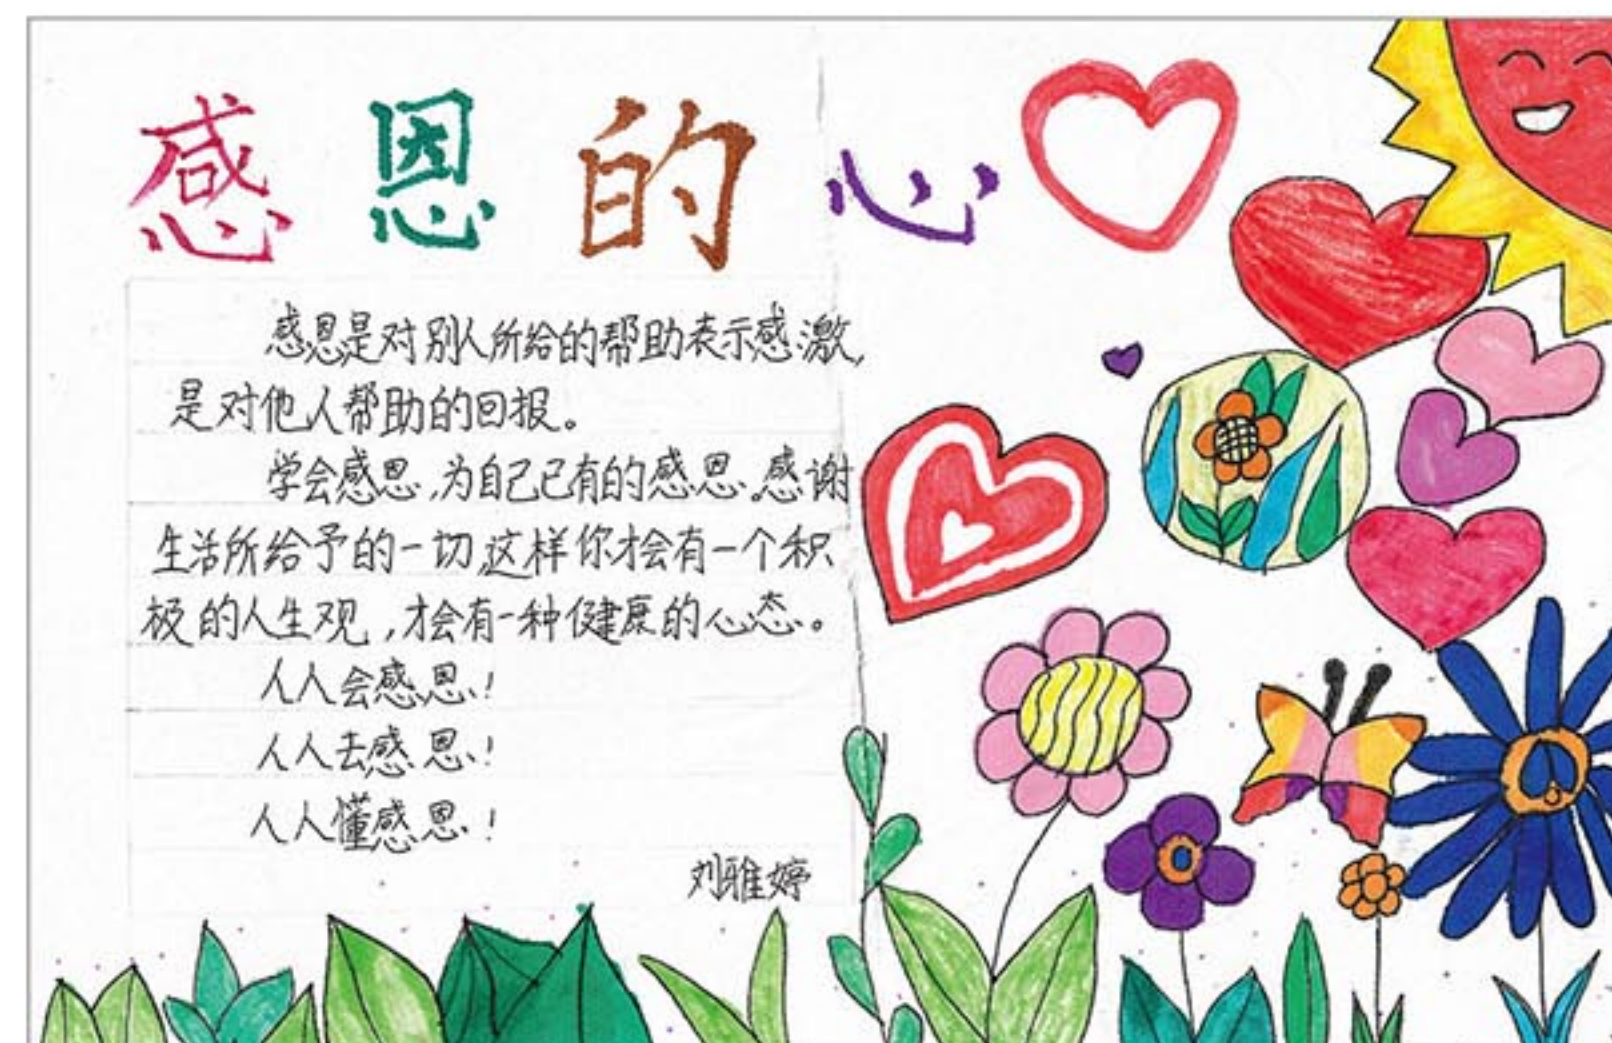 感恩的心
感恩是对别人所给的帮助表示感激,
是对他人帮助的回报。
学会感恩,为自己已有的感恩。感谢
生活所给予的一切,这样你才会有一个积
极的人生观,才会有一种健康的心态。
人人会感恩!
人人去感恩!
人人懂感恩!
刘雅婷